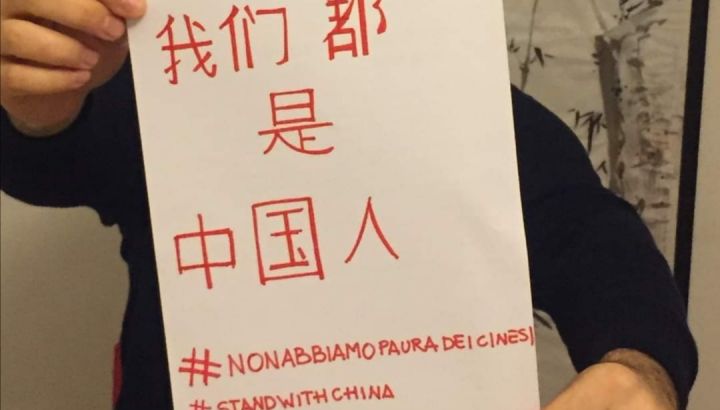 我们都
是
中国人
#NONABBIAMOPAURADEICINESI
#STANDWITHCHINA